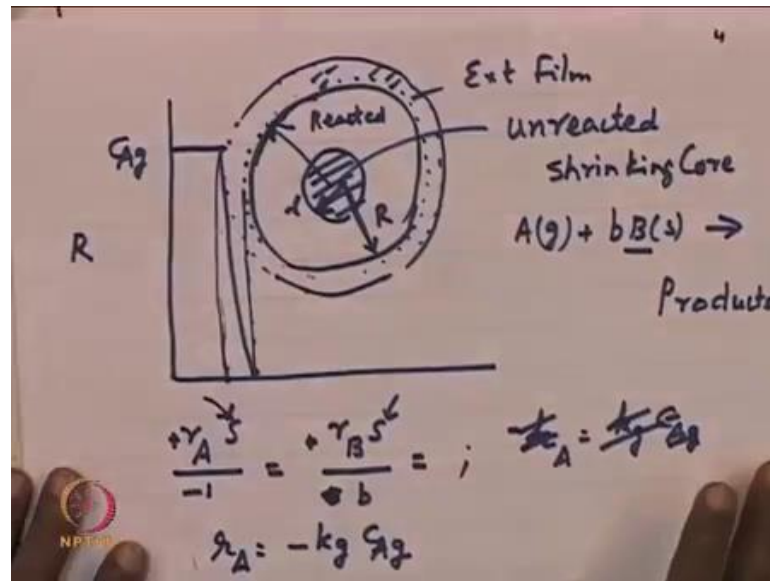 4
Ext Film
Reacted
unreacted
shrinking Core
C_Ag
R
R
A(g) + bB(s) →
Products
+r_A S / -1 = + r_B S / b = ; A = kg C_Ag
r_A = -kg C_Ag
NPTEL